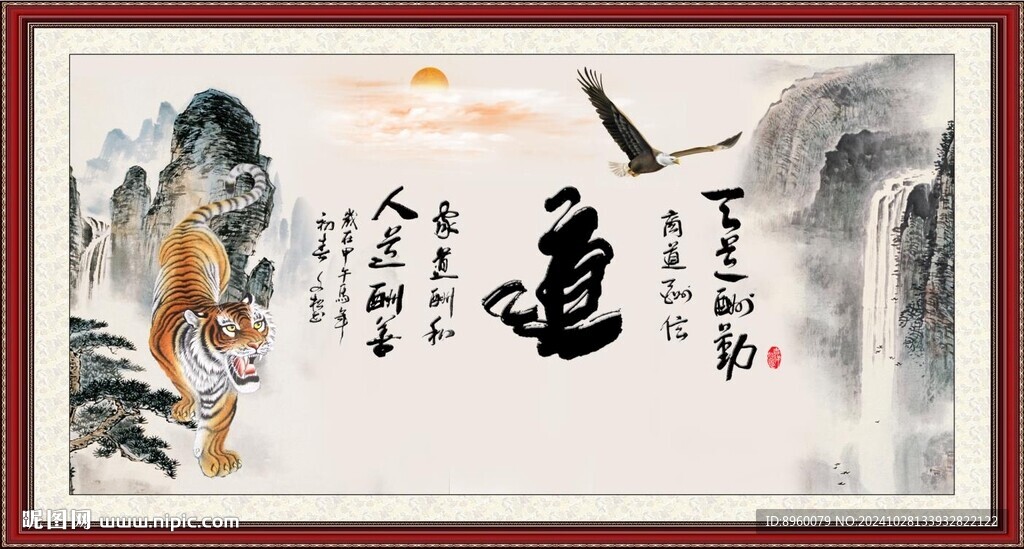 天道酬勤
商道酬信
道
家道酬和
人道酬善
岁在甲午马年
初春
昵图网 www.nipic.com
ID:8960079 NO:20241028133932822122